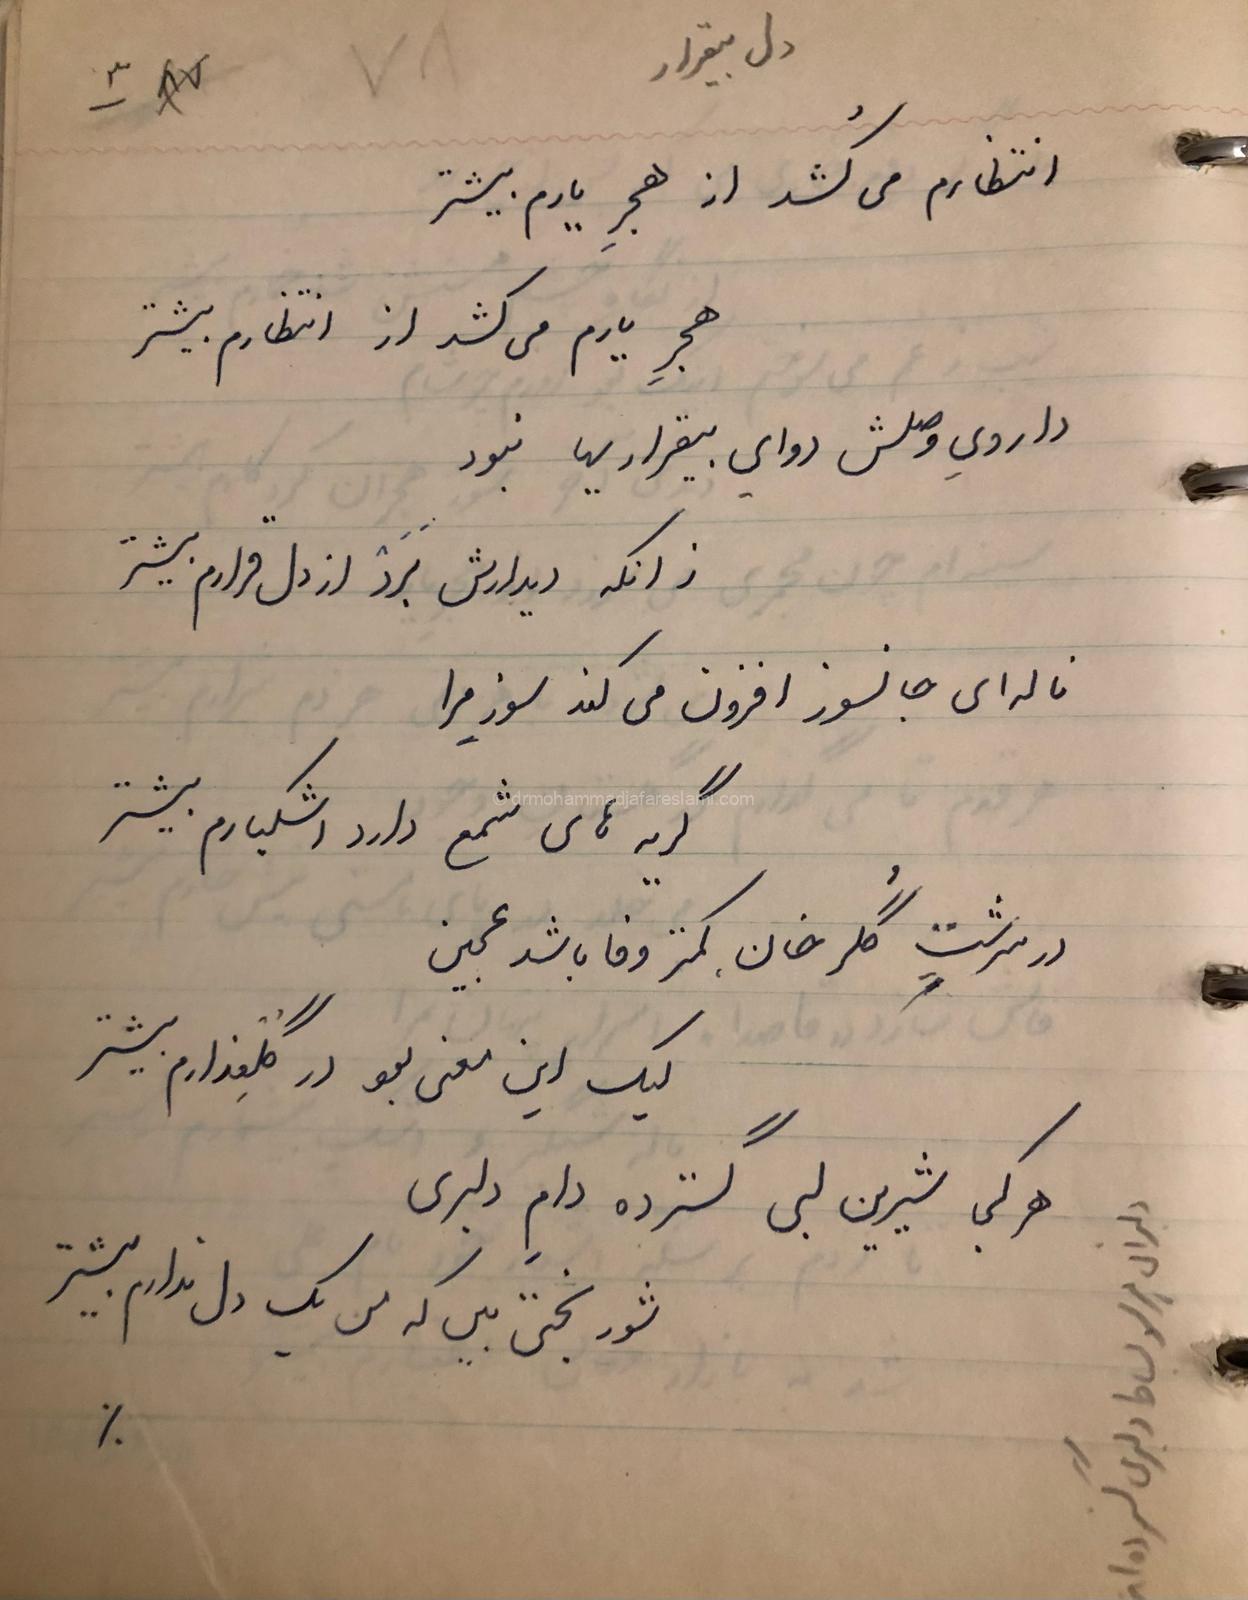 دل بیقرار
۷۸
۳
انتظارم می کُشد از هجرِ یارم بیشتر
هجرِ یارم می کشد از انتظارم بیشتر
دارویِ وصلش دوایِ بیقراریها نبود
زانکه دیدارش بَرَدْ از دل قرارم بیشتر
ناله‌ای جانسوز افزون می کند سوزِ مرا
گریه های شمع دارد اشکبارم بیشتر
© drmohammadjafareslami.com
در سرشتِ گُلرخان کمتر وفا باشد عجین
لیک این معنی بود در گلعِذارم بیشتر
هر کجا شیرین لبی گسترده دامِ دلبری
شور بختی بین که من یک دل ندارم بیشتر
٪
دلبران بساط دلبری گسترده‌اند